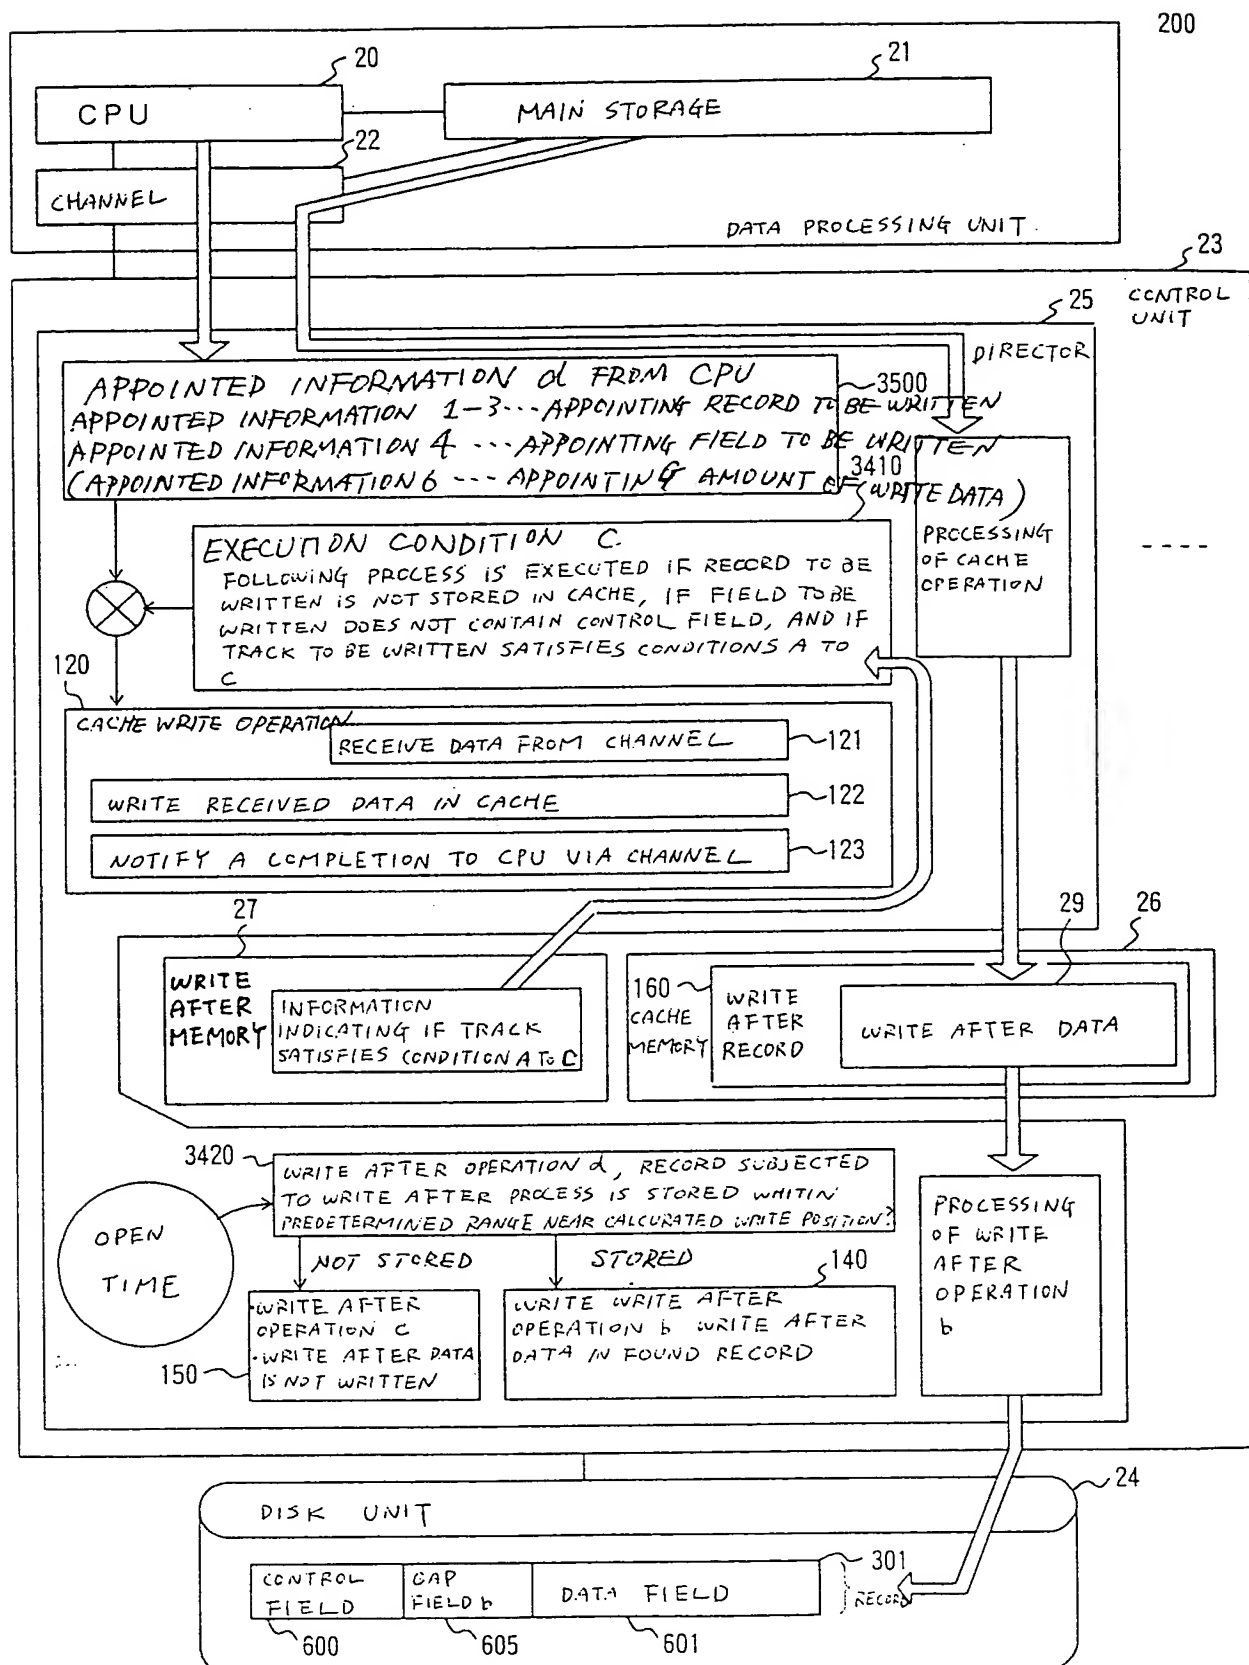 200
20
21
CPU
MAIN STORAGE
22
CHANNEL
DATA PROCESSING UNIT.
23
CONTROL
UNIT
25
DIRECTOR
APPOINTED INFORMATION d FROM CPU
3500
APPOINTED INFORMATION 1-3---APPOINTING RECORD TO BE WRITTEN
APPOINTED INFORMATION 4 --- APPOINTING FIELD TO BE WRITTEN
(APPOINTED INFORMATION 6 --- APPOINTING AMOUNT OF WRITE DATA)
3410
EXECUTION CONDITION C.
FOLLOWING PROCESS IS EXECUTED IF RECORD TO BE
WRITTEN IS NOT STORED IN CACHE, IF FIELD TO BE
WRITTEN DOES NOT CONTAIN CONTROL FIELD, AND IF
TRACK TO BE WRITTEN SATISFIES CONDITIONS A TO
C
PROCESSING
OF CACHE
OPERATION
----
120
CACHE WRITE OPERATION
RECEIVE DATA FROM CHANNEL
121
WRITE RECEIVED DATA IN CACHE
122
NOTIFY A COMPLETION TO CPU VIA CHANNEL
123
27
WRITE
AFTER
MEMORY
INFORMATION
INDICATING IF TRACK
SATISFIES CONDITION A TO C
29
26
160
CACHE
MEMORY
WRITE
AFTER
RECORD
WRITE AFTER DATA
3420
WRITE AFTER OPERATION d, RECORD SUBJECTED
TO WRITE AFTER PROCESS IS STORED WHITIN
PREDETERMINED RANGE NEAR CALCURATED WRITE POSITION?
OPEN
TIME
NOT STORED
STORED
140
·WRITE AFTER
OPERATION C
·WRITE AFTER DATA
IS NOT WRITTEN
150
WRITE WRITE AFTER
OPERATION b WRITE AFTER
DATA IN FOUND RECORD
PROCESSING
OF WRITE
AFTER
OPERATION
b
24
DISK UNIT
301
CONTROL
FIELD
GAP
FIELD b
DATA FIELD
RECORD
600
605
601